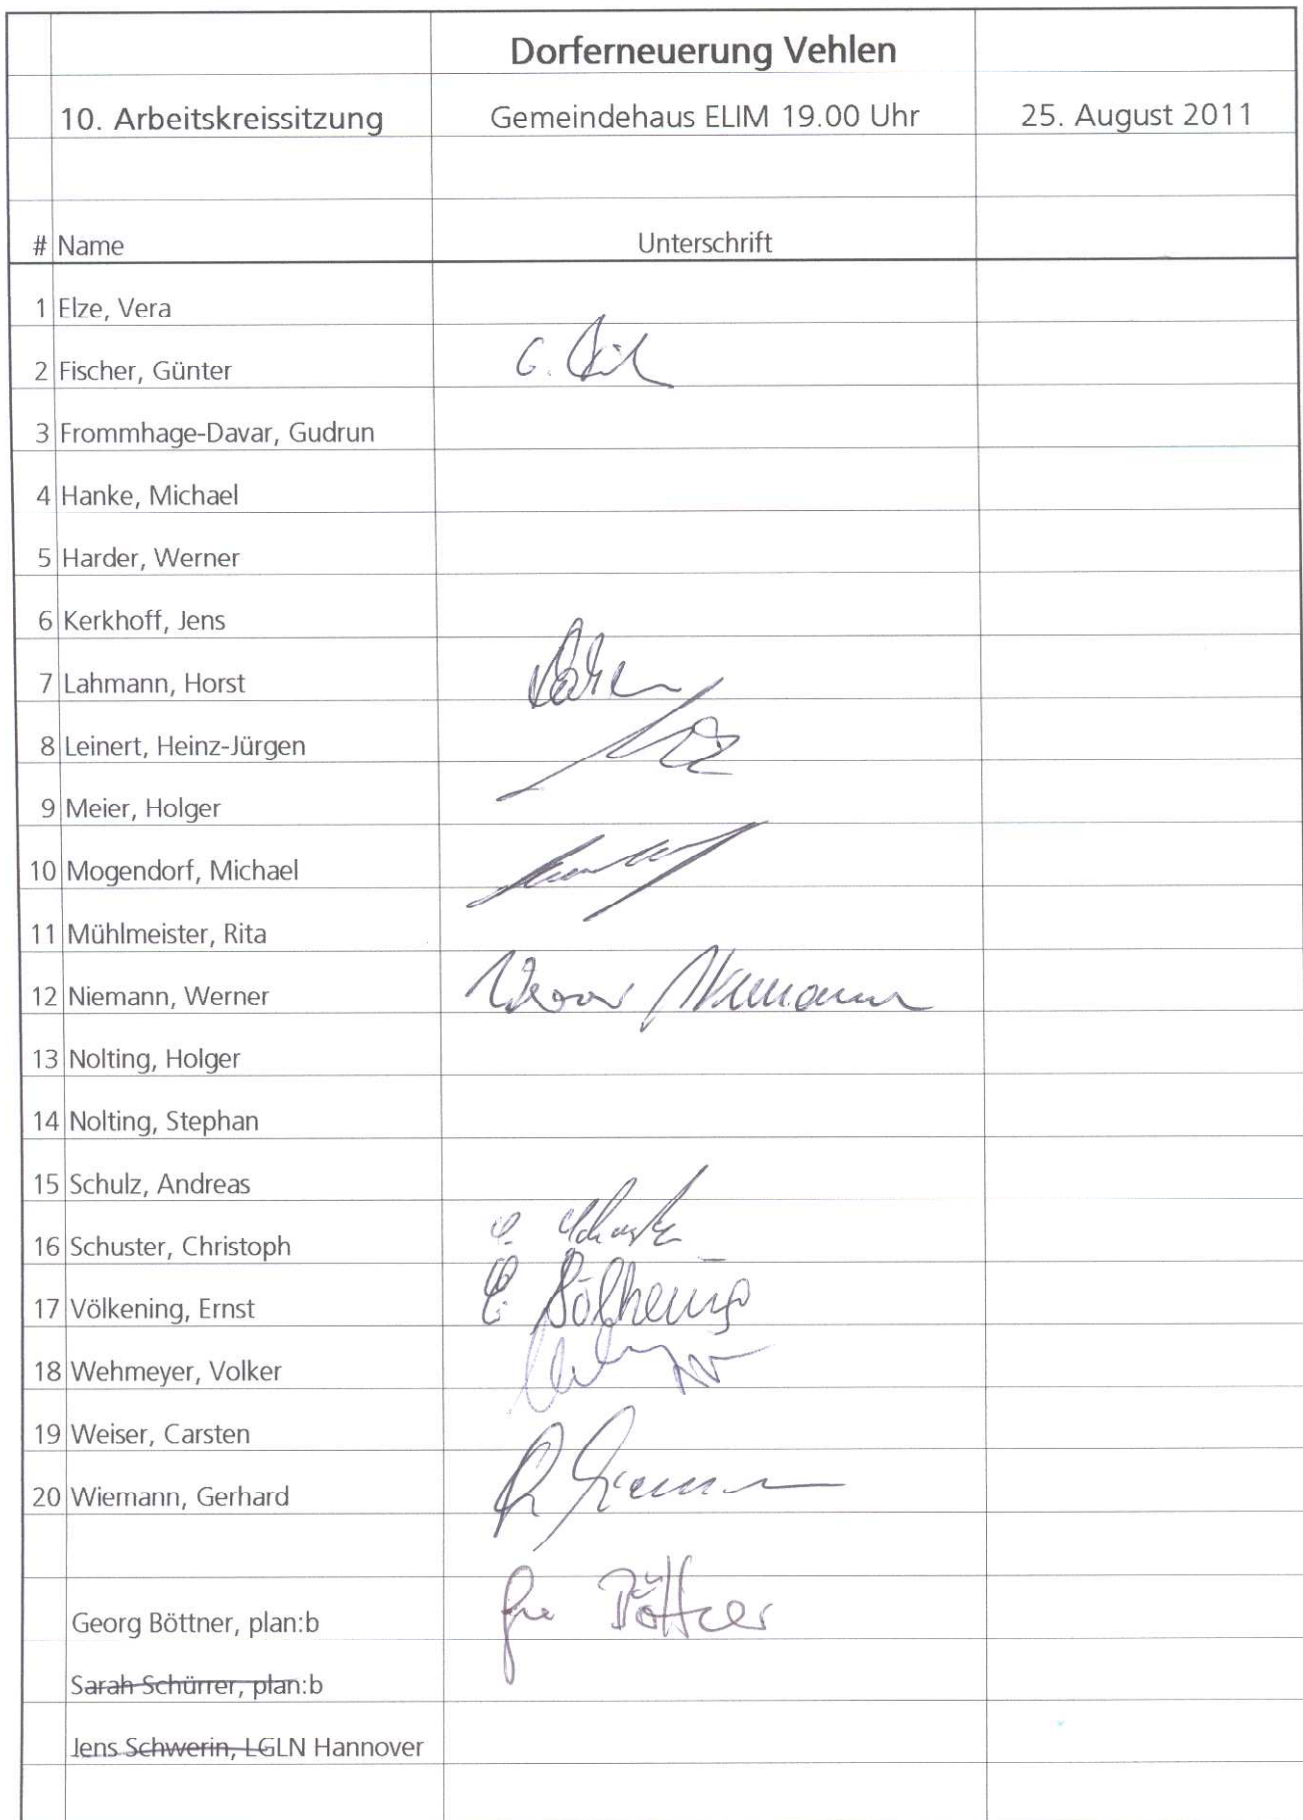 Dorferneuerung Vehlen
10. Arbeitskreissitzung Gemeindehaus ELIM 19.00 Uhr 25. August 2011
# Name Unterschrift
1 Elze, Vera
2 Fischer, Günter G.
3 Frommhage-Davar, Gudrun
4 Hanke, Michael
5 Harder, Werner
6 Kerkhoff, Jens
7 Lahmann, Horst
8 Leinert, Heinz-Jürgen
9 Meier, Holger
10 Mogendorf, Michael
11 Mühlmeister, Rita
12 Niemann, Werner Werner Niemann
13 Nolting, Holger
14 Nolting, Stephan
15 Schulz, Andreas
16 Schuster, Christoph C. Schuster
17 Völkening, Ernst E. Völkening
18 Wehmeyer, Volker
19 Weiser, Carsten
20 Wiemann, Gerhard
Georg Böttner, plan:b Böttner
Sarah Schürrer, plan:b
Jens Schwerin, LGLN Hannover